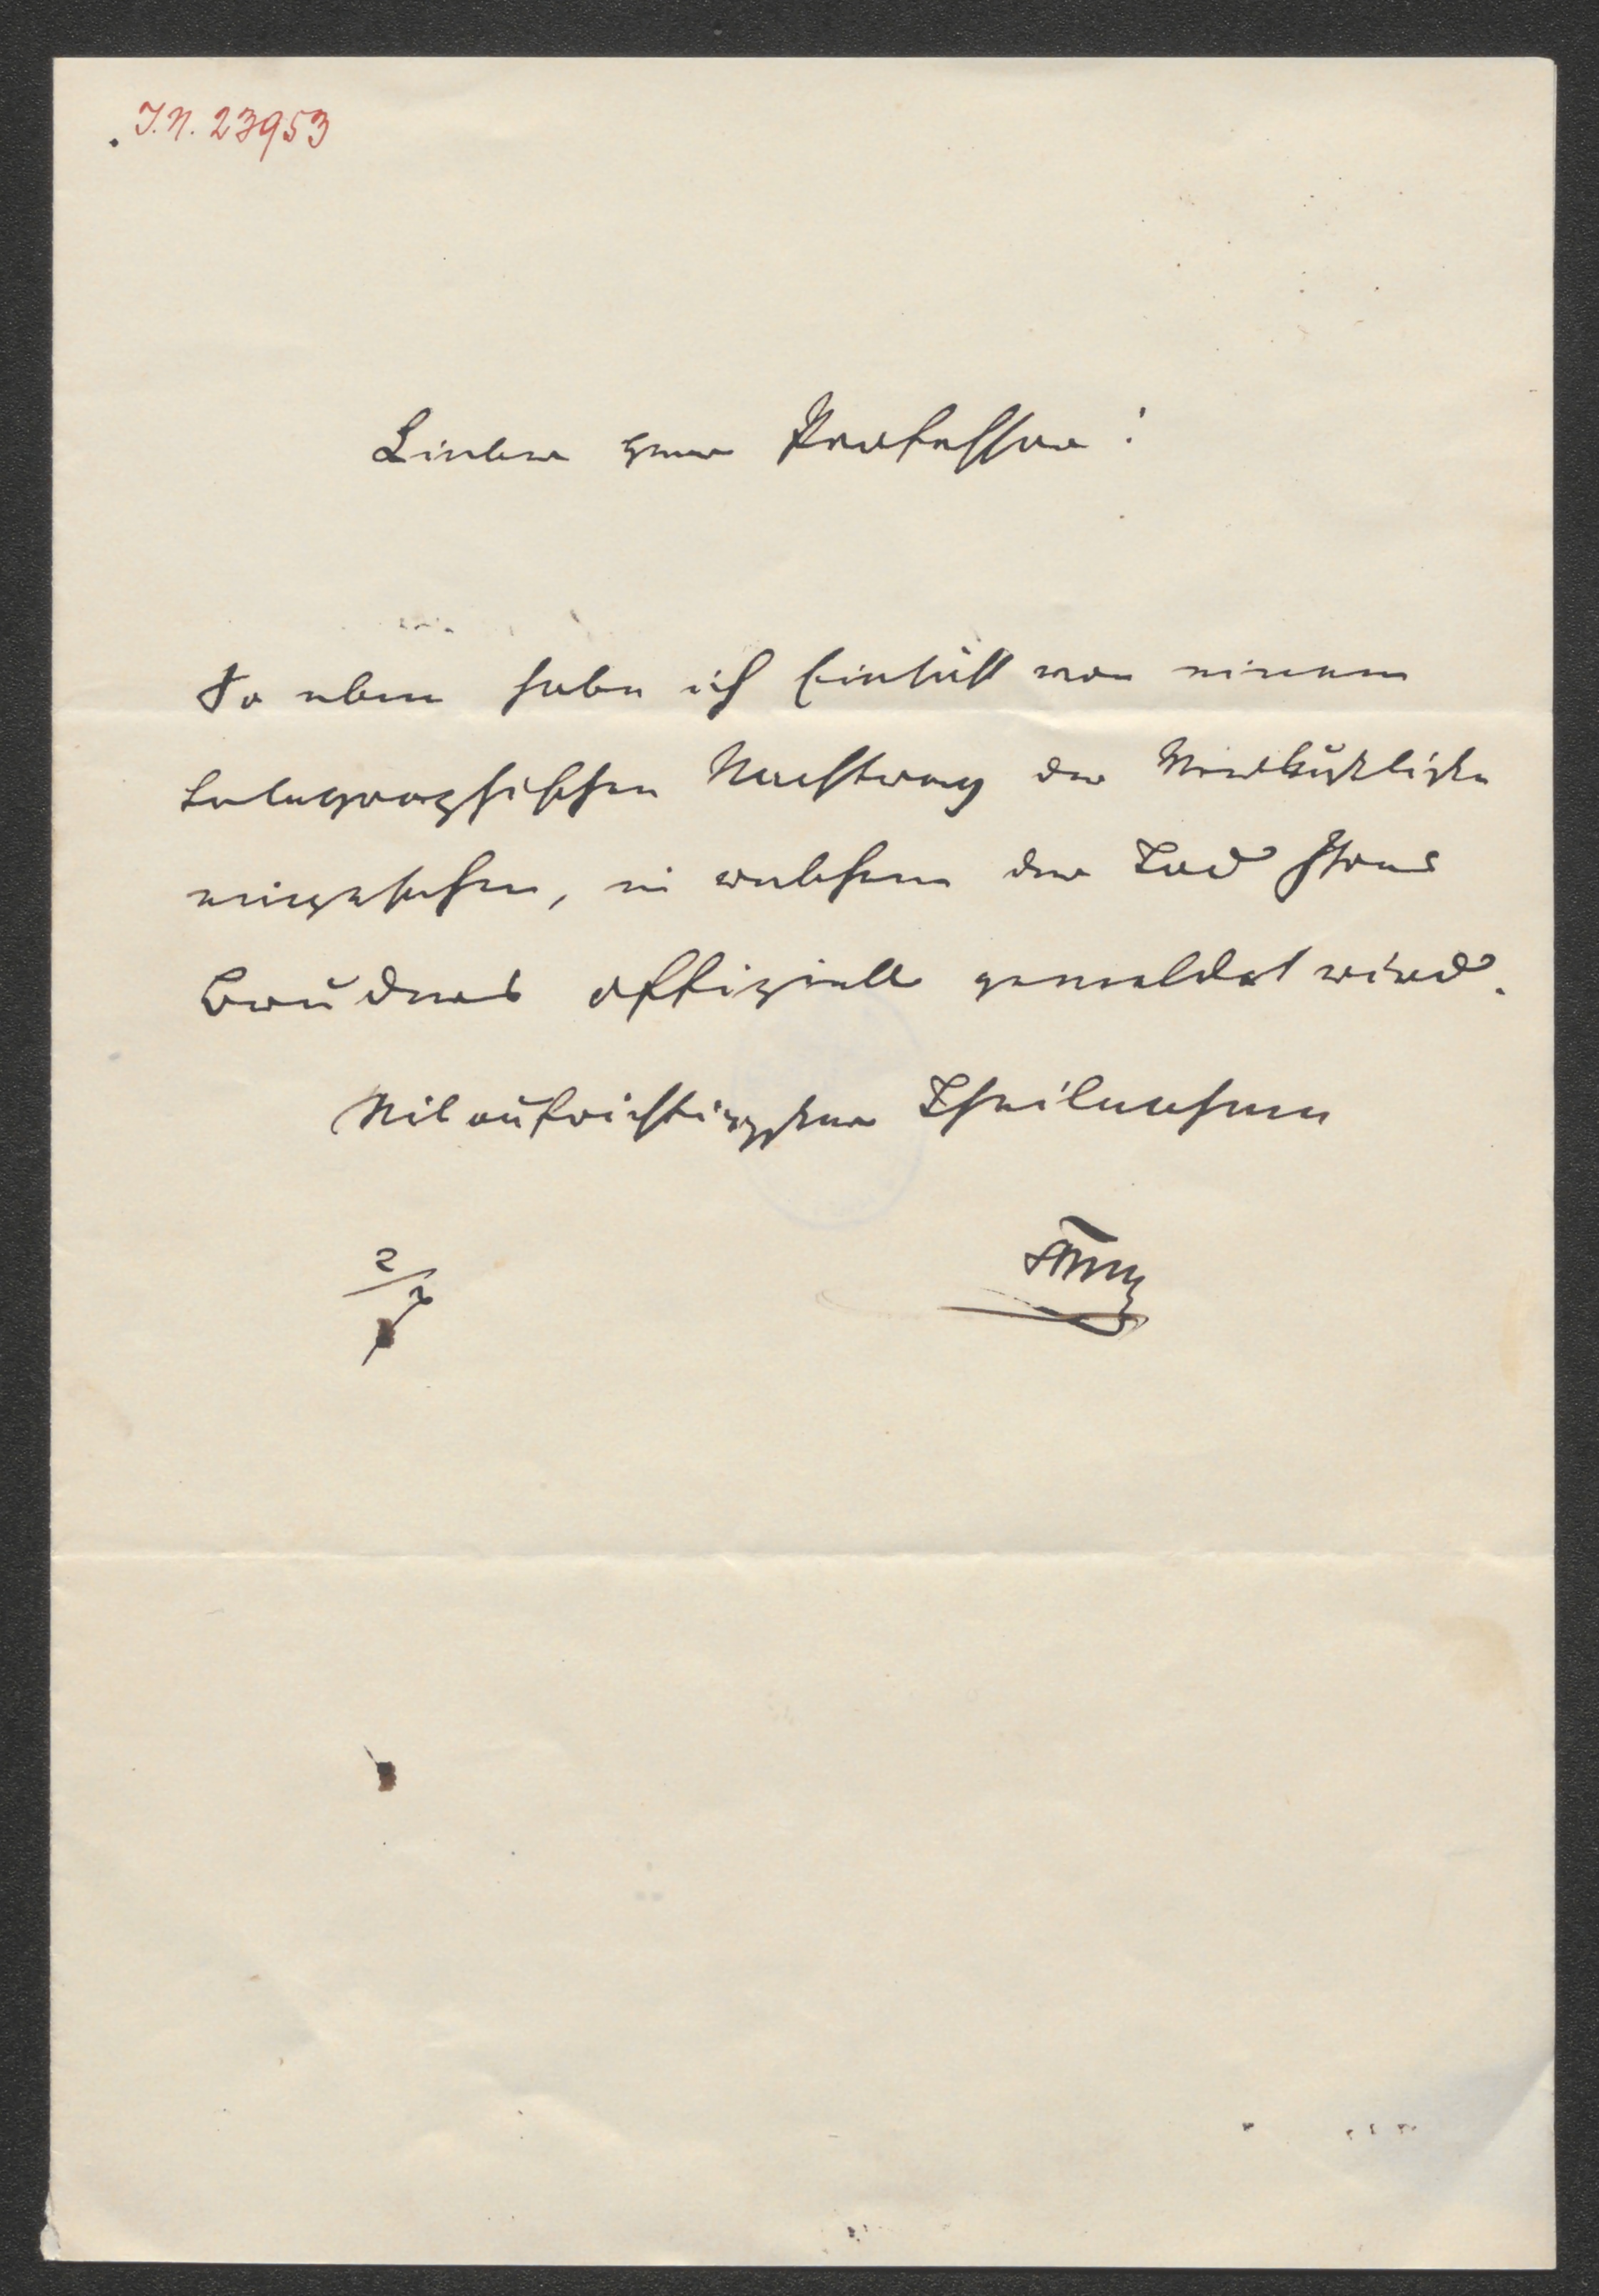 J.N. 23953
Lieber Herr Professor!
So eben habe ich Einsicht von einem
telegraphischen Nachtrag der Verlustliste
eingesehen, in welchem der Tod Ihres
Bruders offiziell gemeldet wird.
Mit aufrichtigsten Theilnehmen
2/